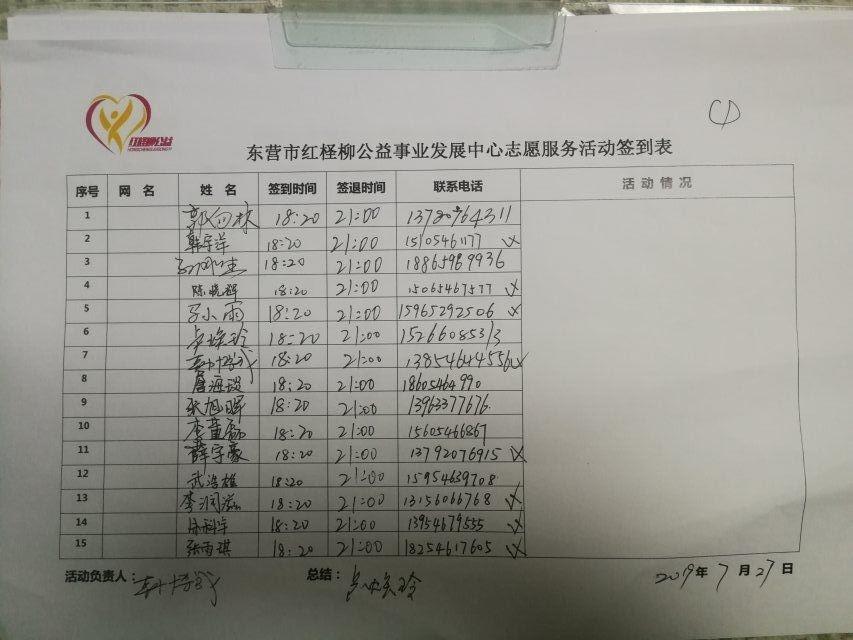 红柽柳公益
东营市红柽柳公益事业发展中心志愿服务活动签到表
序号 网 名 姓 名 签到时间 签退时间 联系电话 活动情况
1 18:20 21:00 13780964311
2 韩宇洋 18:20 21:00 15105461177
3 18:20 21:00 18865989936
4 陈晓辉 18:20 21:00 15065467577
5 小雨 18:20 21:00 15965292506
6 18:20 21:00 15266085313
7 18:20 21:00 13854644556
8 唐海 18:20 21:00 18605464990
9 张旭晖 18:20 21:00 13963377676
10 18:20 21:00 15605466867
11 薛宇豪 18:20 21:00 13792076915
12 武浩雄 18:20 21:00 15954639708
13 李润 18:20 21:00 13156066768
14 18:20 21:00 13954679555
15 张雨琪 18:20 21:00 18254617605
活动负责人: 总结: 2019年7月27日